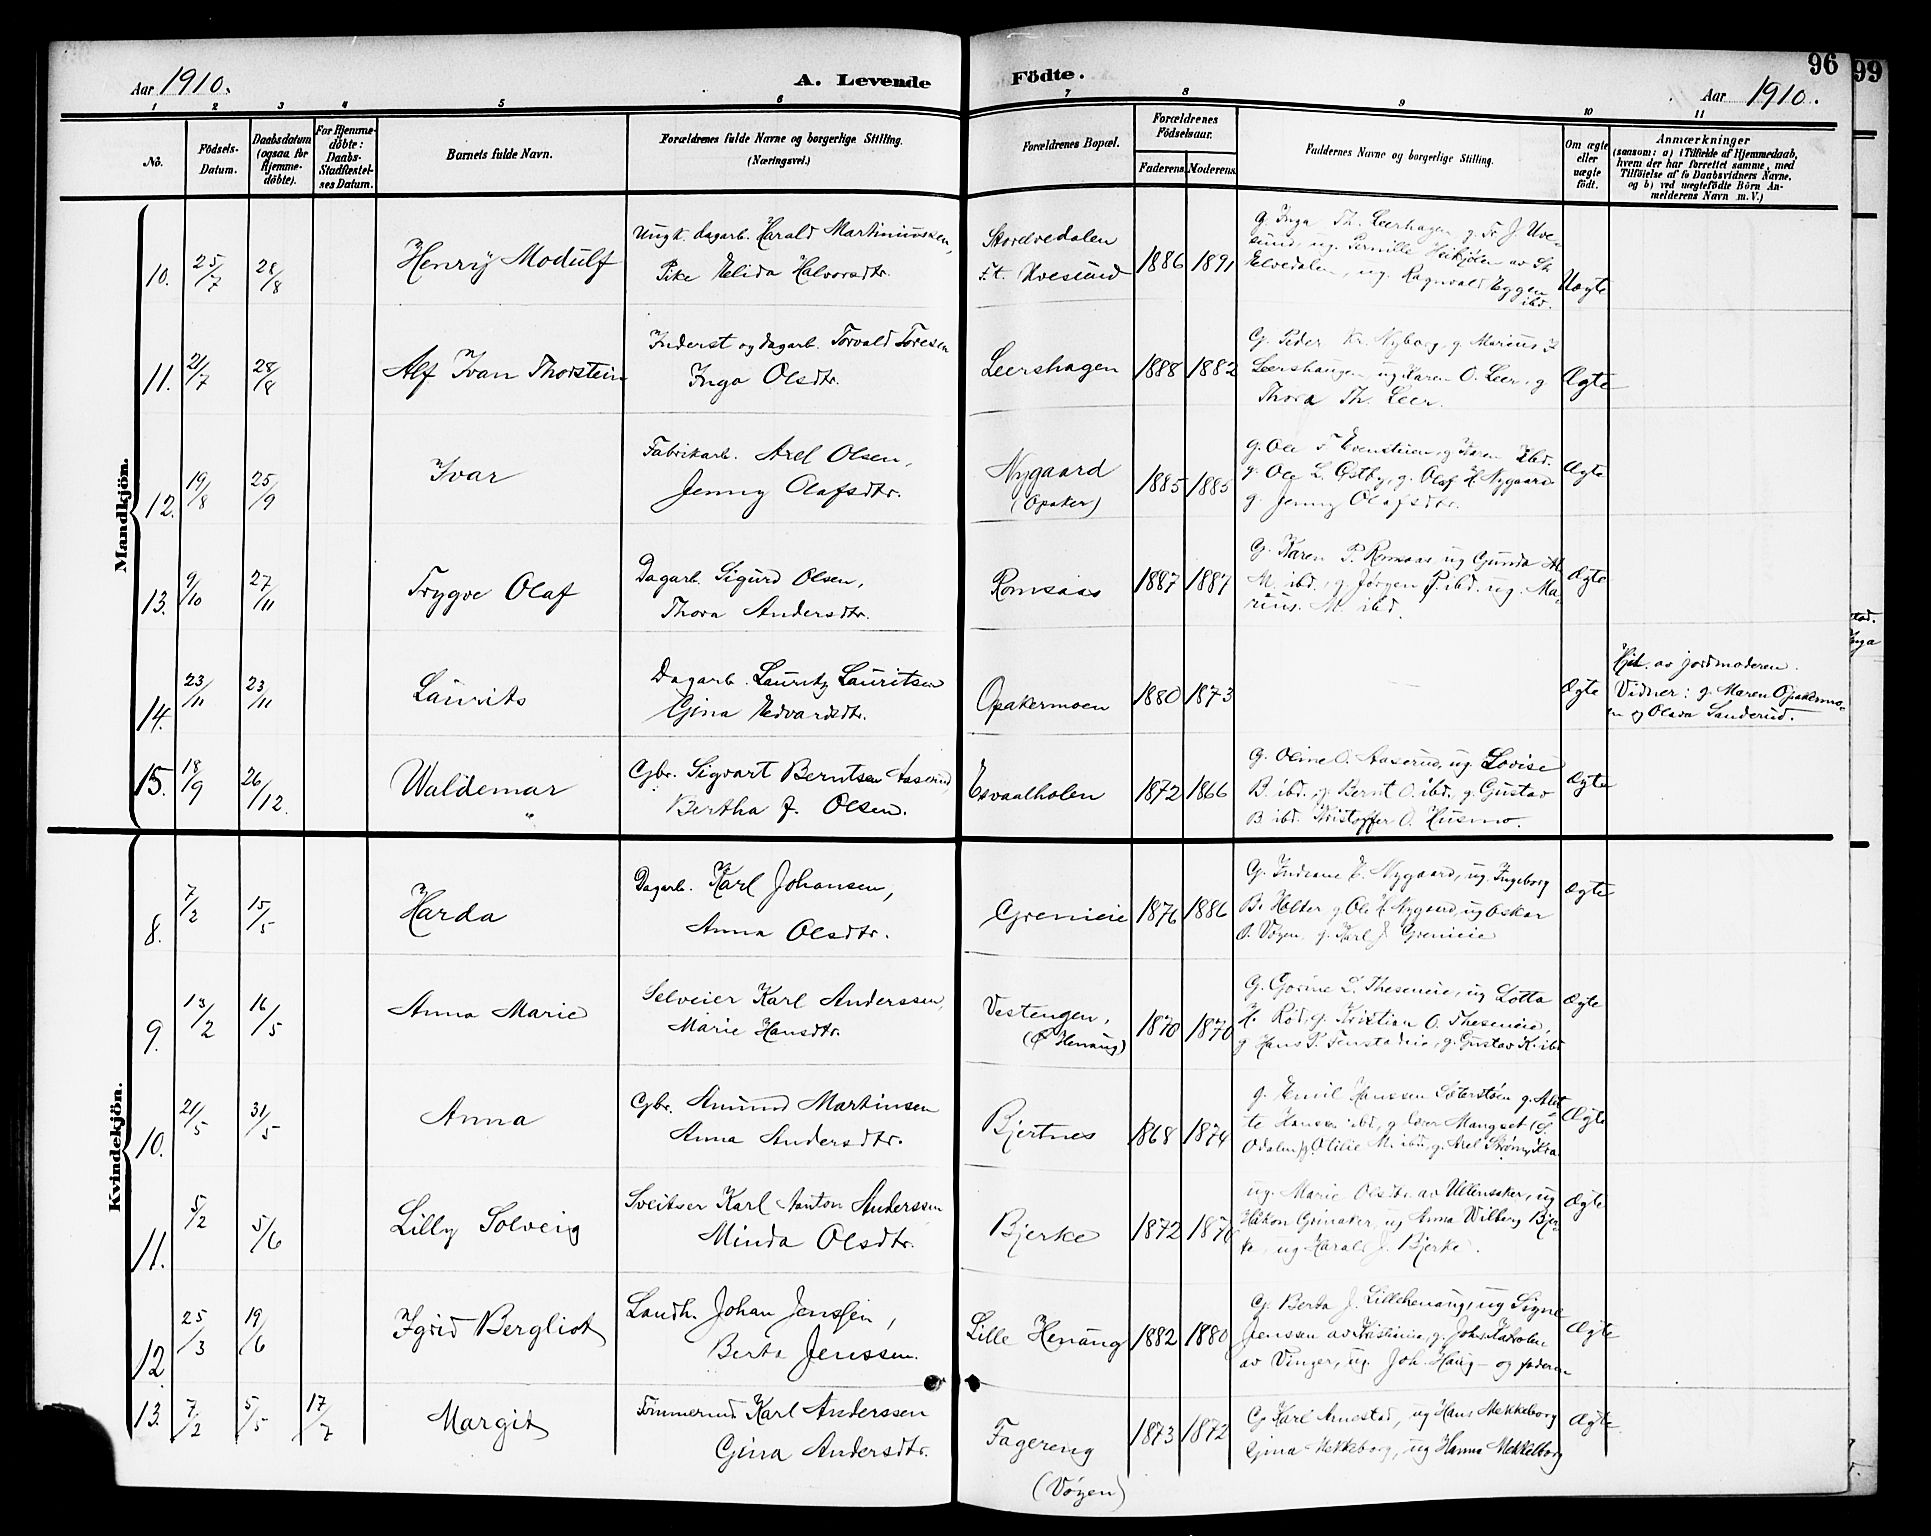 Aar 1910. A. Levende Födte. Aar 1910. 96 99
1 2 3 4 5 6 7 8 9 10 11
No. Födsels-Datum. Daabsdatum (ogsaa for Hjemme-döbte). For Hjemme-döbte: Daabs-Stadfæstelses Datum. Barnets fulde Navn. Forældrenes fulde Navne og borgerlige Stilling. (Næringsvei.) Forældrenes Bopæl. Forældrenes Födselsaar. Faderens Moderens. Faddernes Navne og borgerlige Stilling. Om ægte eller uægte födt. Anmærkninger (saasom: a) i Tilfælde af Hjemmedaab, hvem der har forrettet samme, med Tilföielse af to Daabsvidners Navne, og b) ved uægtefödte Börn Anmelderens Navn m. V.)
Mandkjön.
10. 25/7 28/8 Henry Modulf Ungk. dagarb. Harald Martiniussen,
Pike Elida Halvorsdtr. Storelvedalen
F.t. Uvesund 1886 1891 g. Inga Th. Leerhagen, g. Tr. J. Uve-
sund, ug. Pernille av St.
Elvedalen, ug. Ragnvald Eggen
ibd. Uægte
11. 21/7 28/8 Alf Ivan Thorstein Inderst og dagarb. Torvald Toresen
Inga Olsdtr. Leershagen 1888 1882 G. Peder Kr. Nyborg, g. Marius
Leershaugen, ug. Karen O. Leer, g.
Thora Th. Leer. Ægte
12. 19/8 25/9 Ivar Fabrikarb. Axel Olsen,
Jenny Olafsdtr. Nygaard
(Opaker) 1885 1885 g. Ole T. Evenstuen, g. Karen ibd.
g. Ole L. Østby, g. Olaf H. Nygaard
g. Jenny Olafsdtr. Ægte
13. 9/10 27/11 Trygve Olaf Dagarb. Sigurd Olsen,
Thora Andersdtr. Romsaas 1887 1887 G. Karen P. Romsaas ug Gunda M.
M. ibd., g. Jørgen P. ibd. ug. Ma-
rius. M. ibd. Ægte
14. 23/11 23/11 Laurits Dagarb. Lauritz Lauritsen
Gina Edvardsdtr. Opakermoen 1880 1873 Ægte Hjd. av jordmoderen.
Vidner: g. Maren Opakermo-
en og Olava Sanderud.
15. 18/9 26/12. Waldemar Gbr. Sigvart Berntsen Aaserud,
Bertha J. Olsen. Esvaalholen 1872 1866 G. Oline O. Aaserud, ug. Lovise
B. ibd., g. Bernt O. ibd., g. Gustav
B. ibd. Kristoffer O. Husmo. Ægte
Kvindekjön.
8. 7/2 15/5 Harda Dagarb. Karl Johansen,
Anna Olsdtr. Grenieie 1876 1886 G. Indiane H. Nygaard, ug. Ingeborg
B. Holter g. Ole H. Nygaard, ug Oskar
O. Vøyen, g. Karl J. Grenieie Ægte
9. 13/2 16/5 Anna Marie Selveier Karl Anderssen,
Marie Hansdtr. Vestengen,
(Henaug) 1870 1870 G. Gorine L. Theseneie, ug Lotta
H. Rød, g. Kristian O. Theseneie,
g Hans P. g. Gustav K. ibd Ægte
10. 21/5 31/5 Anna Gbr. Amund Martinsen
Anna Andersdtr. Bjertnes 1868 1874 g. Emil Hanssen g.
Hanssen ibd, g. Iver Mangset (S.
Odalen), g. Otilie M. ibd., g. Axel Strøm, Kra. Ægte
11. 5/2 5/6 Lilly Solveig Sveitser Karl Anton Anderssen
Minda Olsdtr. Bjerke 1872 1876 ug. Marie Olsdtr. av Ullensaker, ug
Håkon Grinaker, ug Anna Wilberg Bjer-
ke, ug Harald J. Bjerke. Ægte
12. 25/3 19/6 Igrid Bergliot Landh. Johan Jenssen,
Berta Jenssen. Lille Henaug 1882 1880 G. Berta J. Lillehenaug, ug Signe
Jenssen av Kristiania, g. Johs
av Vinger, ug. Joh. Haug - og faderen Ægte
13. 7/2 5/5 17/7 Margit Tømmermd. Karl Anderssen
Gina Andersdtr. Fagereng
(Vøyen) 1873 1872 G. Karl Arnestad, ug Hans Mekkeborg
Gina Mekkeborg, ug Hanna Mekkelborg Ægte